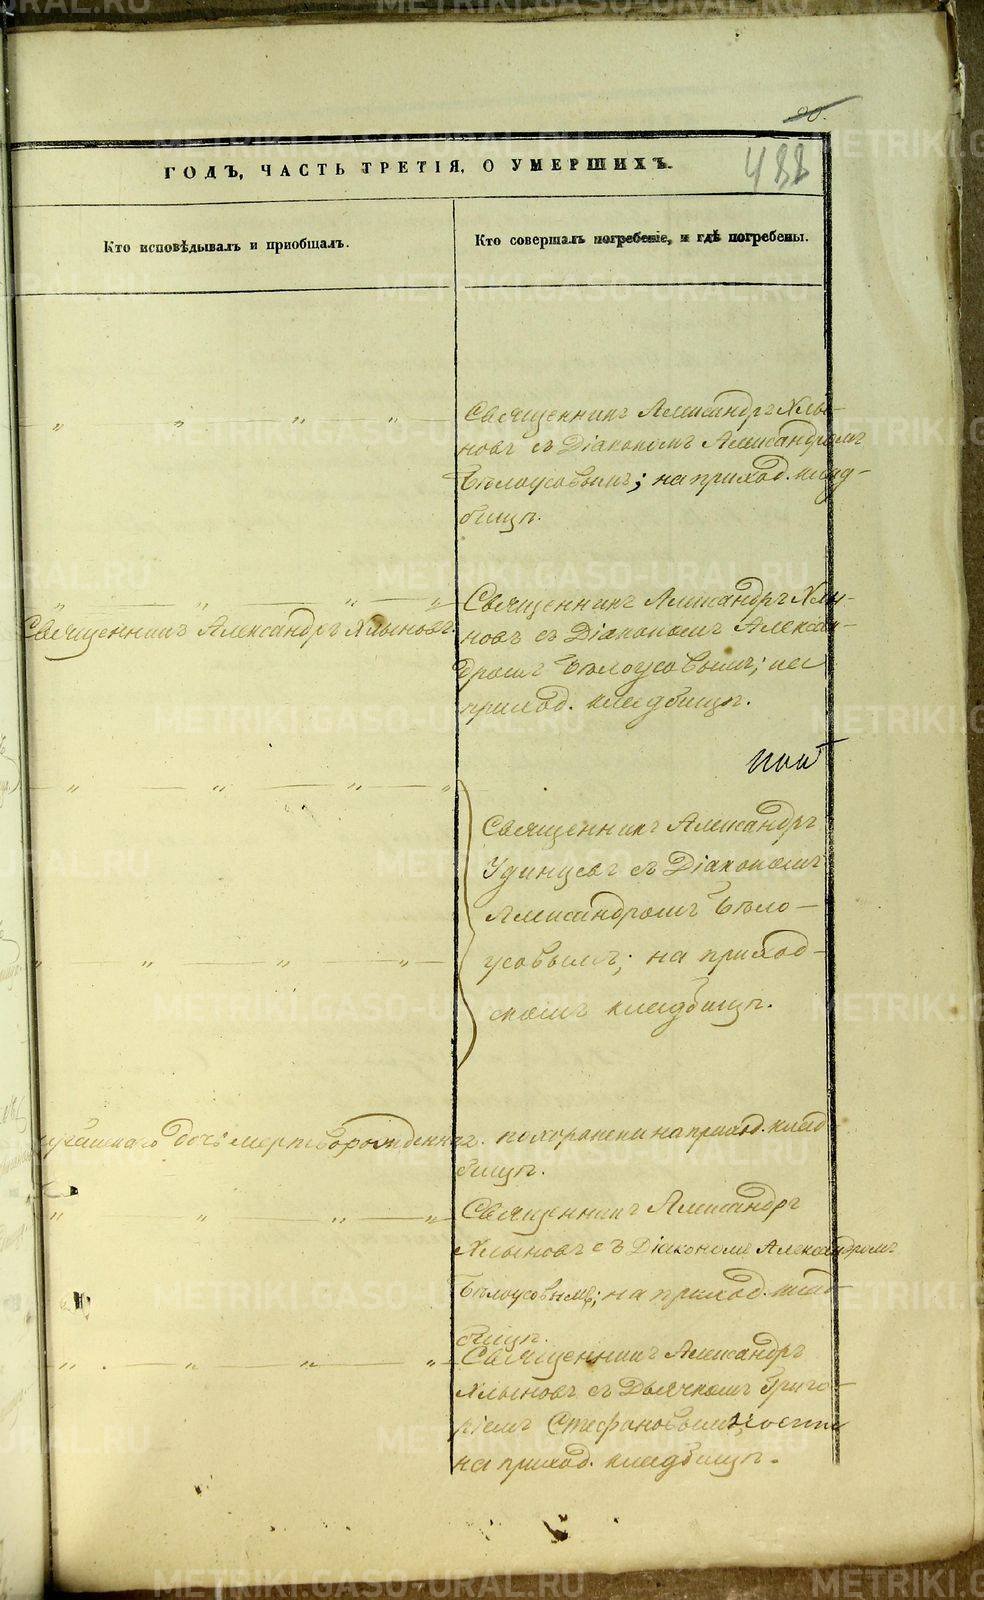 20.
488
ГОДЪ, ЧАСТЬ ТРЕТІЯ, О УМЕРШИХЪ.
Кто исповѣдывалъ и приобщалъ.
Кто совершалъ погребеніе, и гдѣ погребены.
„ „ „ „
Священникъ Александръ Хлы-
новъ съ Діакономъ Александромъ
Бѣлоусовымъ; на приход. клад-
бищѣ.
„ „ „ „
Священникъ Александръ Хлыновъ.
Священникъ Александръ Хлы-
новъ съ Діакономъ Алексан-
дромъ Бѣлоусовымъ; на
приход. кладбищѣ.
„ „ „ „
Священникъ Александръ
Удинцевъ съ Діакономъ
Александромъ Бѣло-
усовымъ; на приход-
скомъ кладбищѣ.
„ „ „ „
дочь мертворожденная. похоронена на приход. клад-
бищѣ.
„ „ „ „
Священникъ Александръ
Хлыновъ съ Діакономъ Александромъ
Бѣлоусовымъ; на приход. клад-
бищѣ.
„ „ „ „
Священникъ Александръ
Хлыновъ съ Дьячкомъ Григо-
ріемъ Стефановымъ
на приход. кладбищѣ.
METRIKI.GASO-URAL.RU